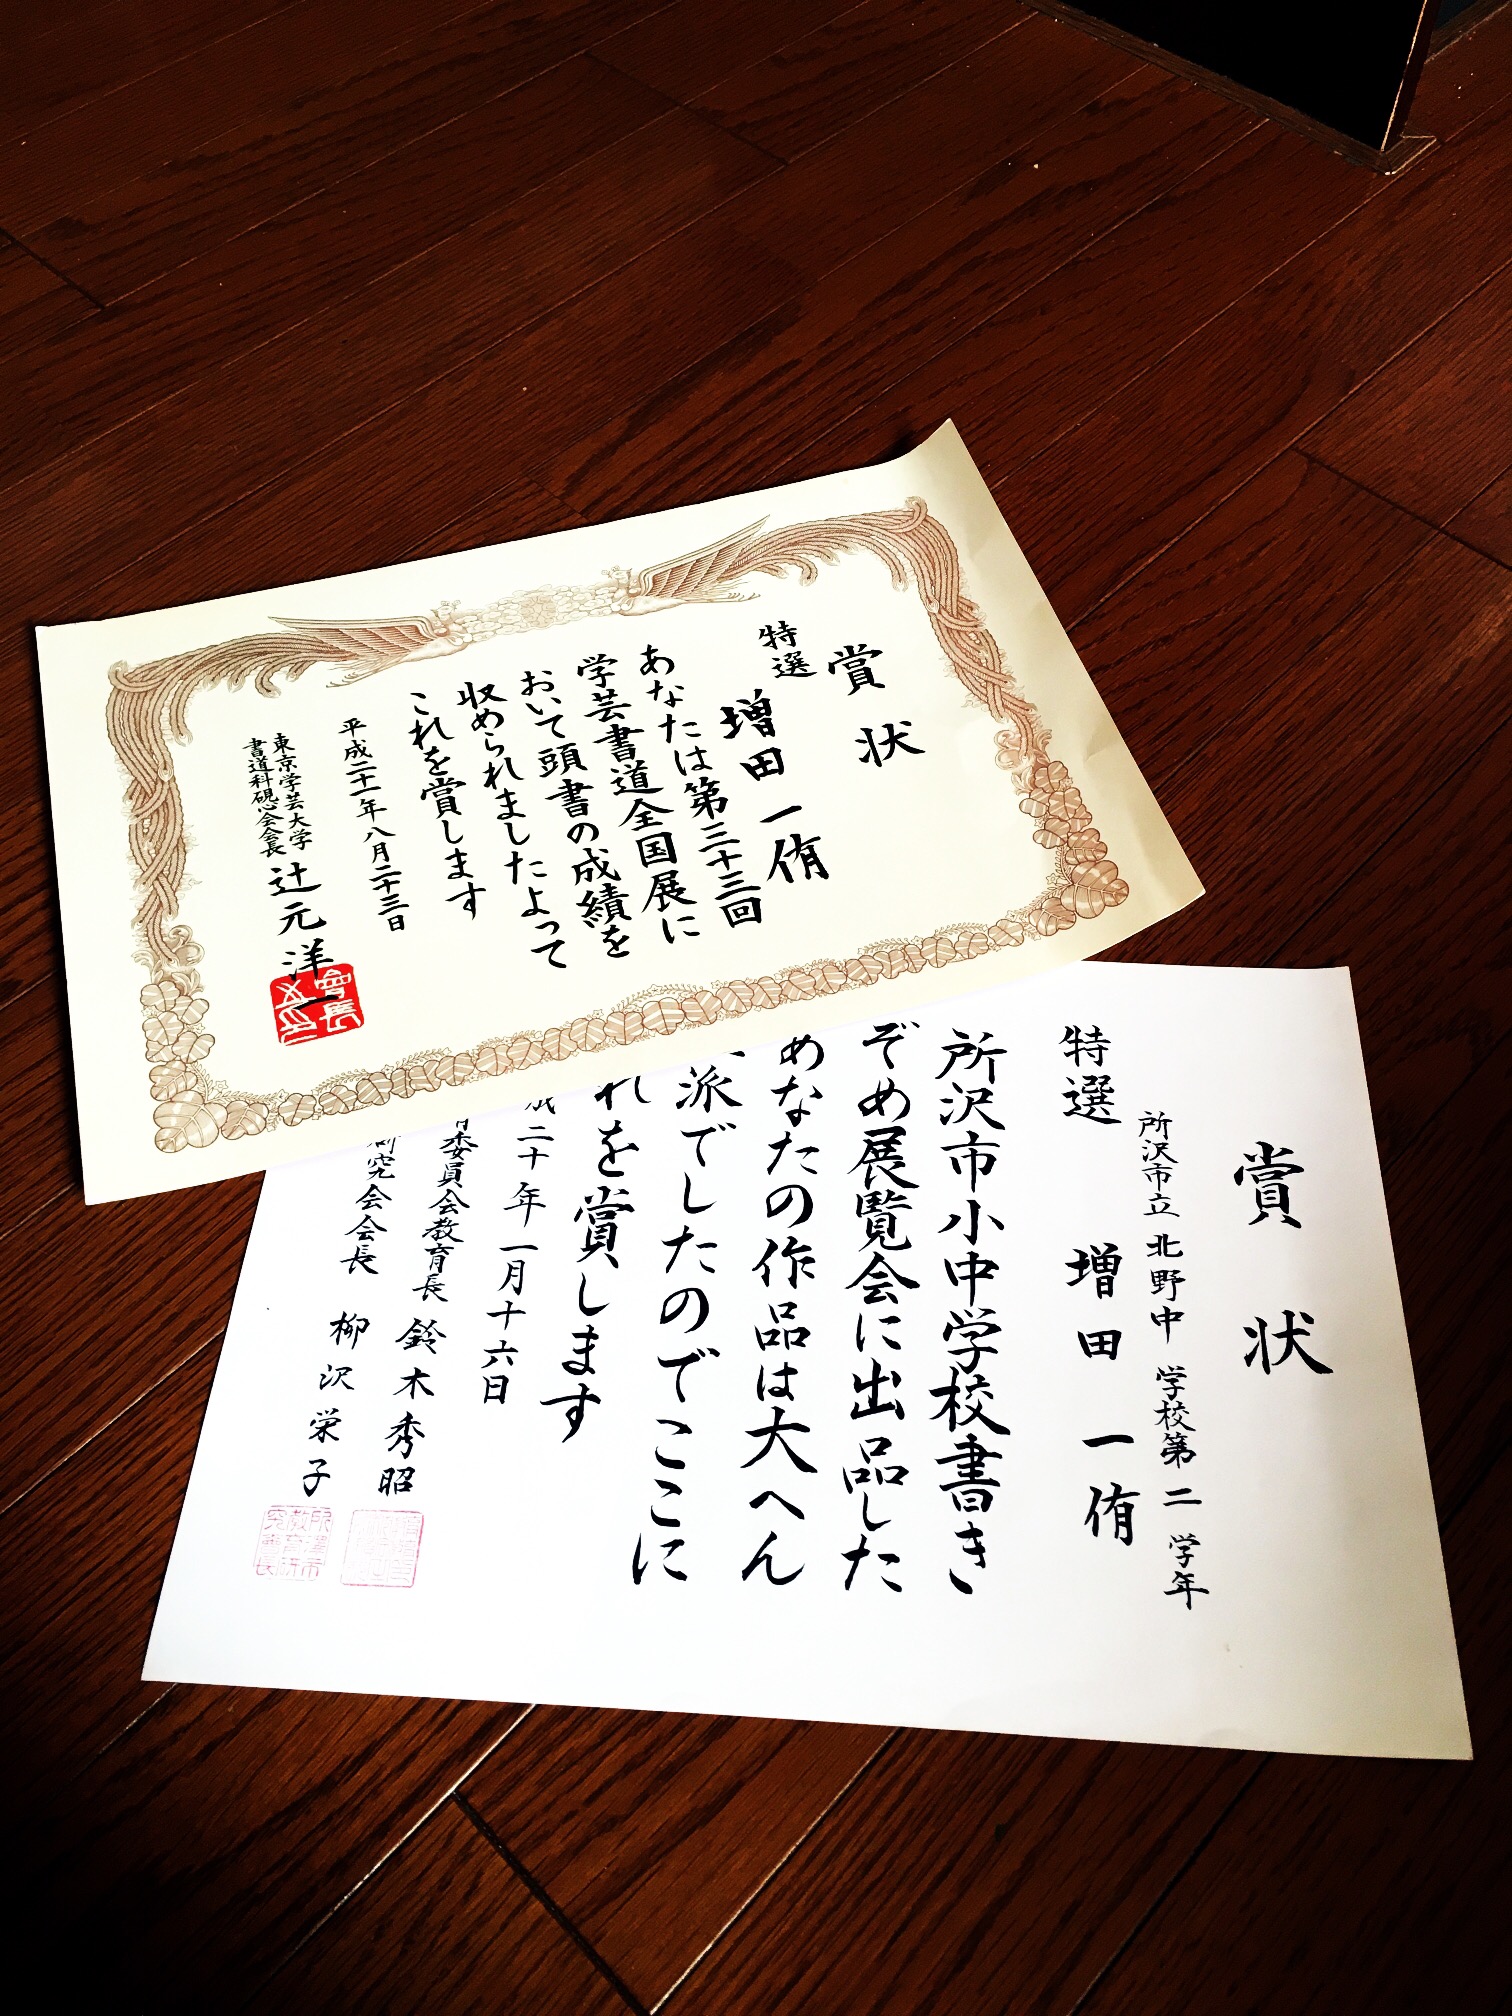 賞状
特選
増田一侑
あなたは第三十三回
学芸書道全国展に
おいて頭書の成績を
収められましたよって
これを賞します
平成二十一年八月二十三日
東京学芸大学
書道科硯心会会長
辻元洋一
賞状
所沢市立北野中学校第二学年
特選
増田一侑
所沢市小中学校書き
ぞめ展覧会に出品した
あなたの作品は大へん
派でしたのでここに
れを賞します
成二十年一月十六日
育委員会教育長 鈴木秀昭
研究会会長 柳沢栄子